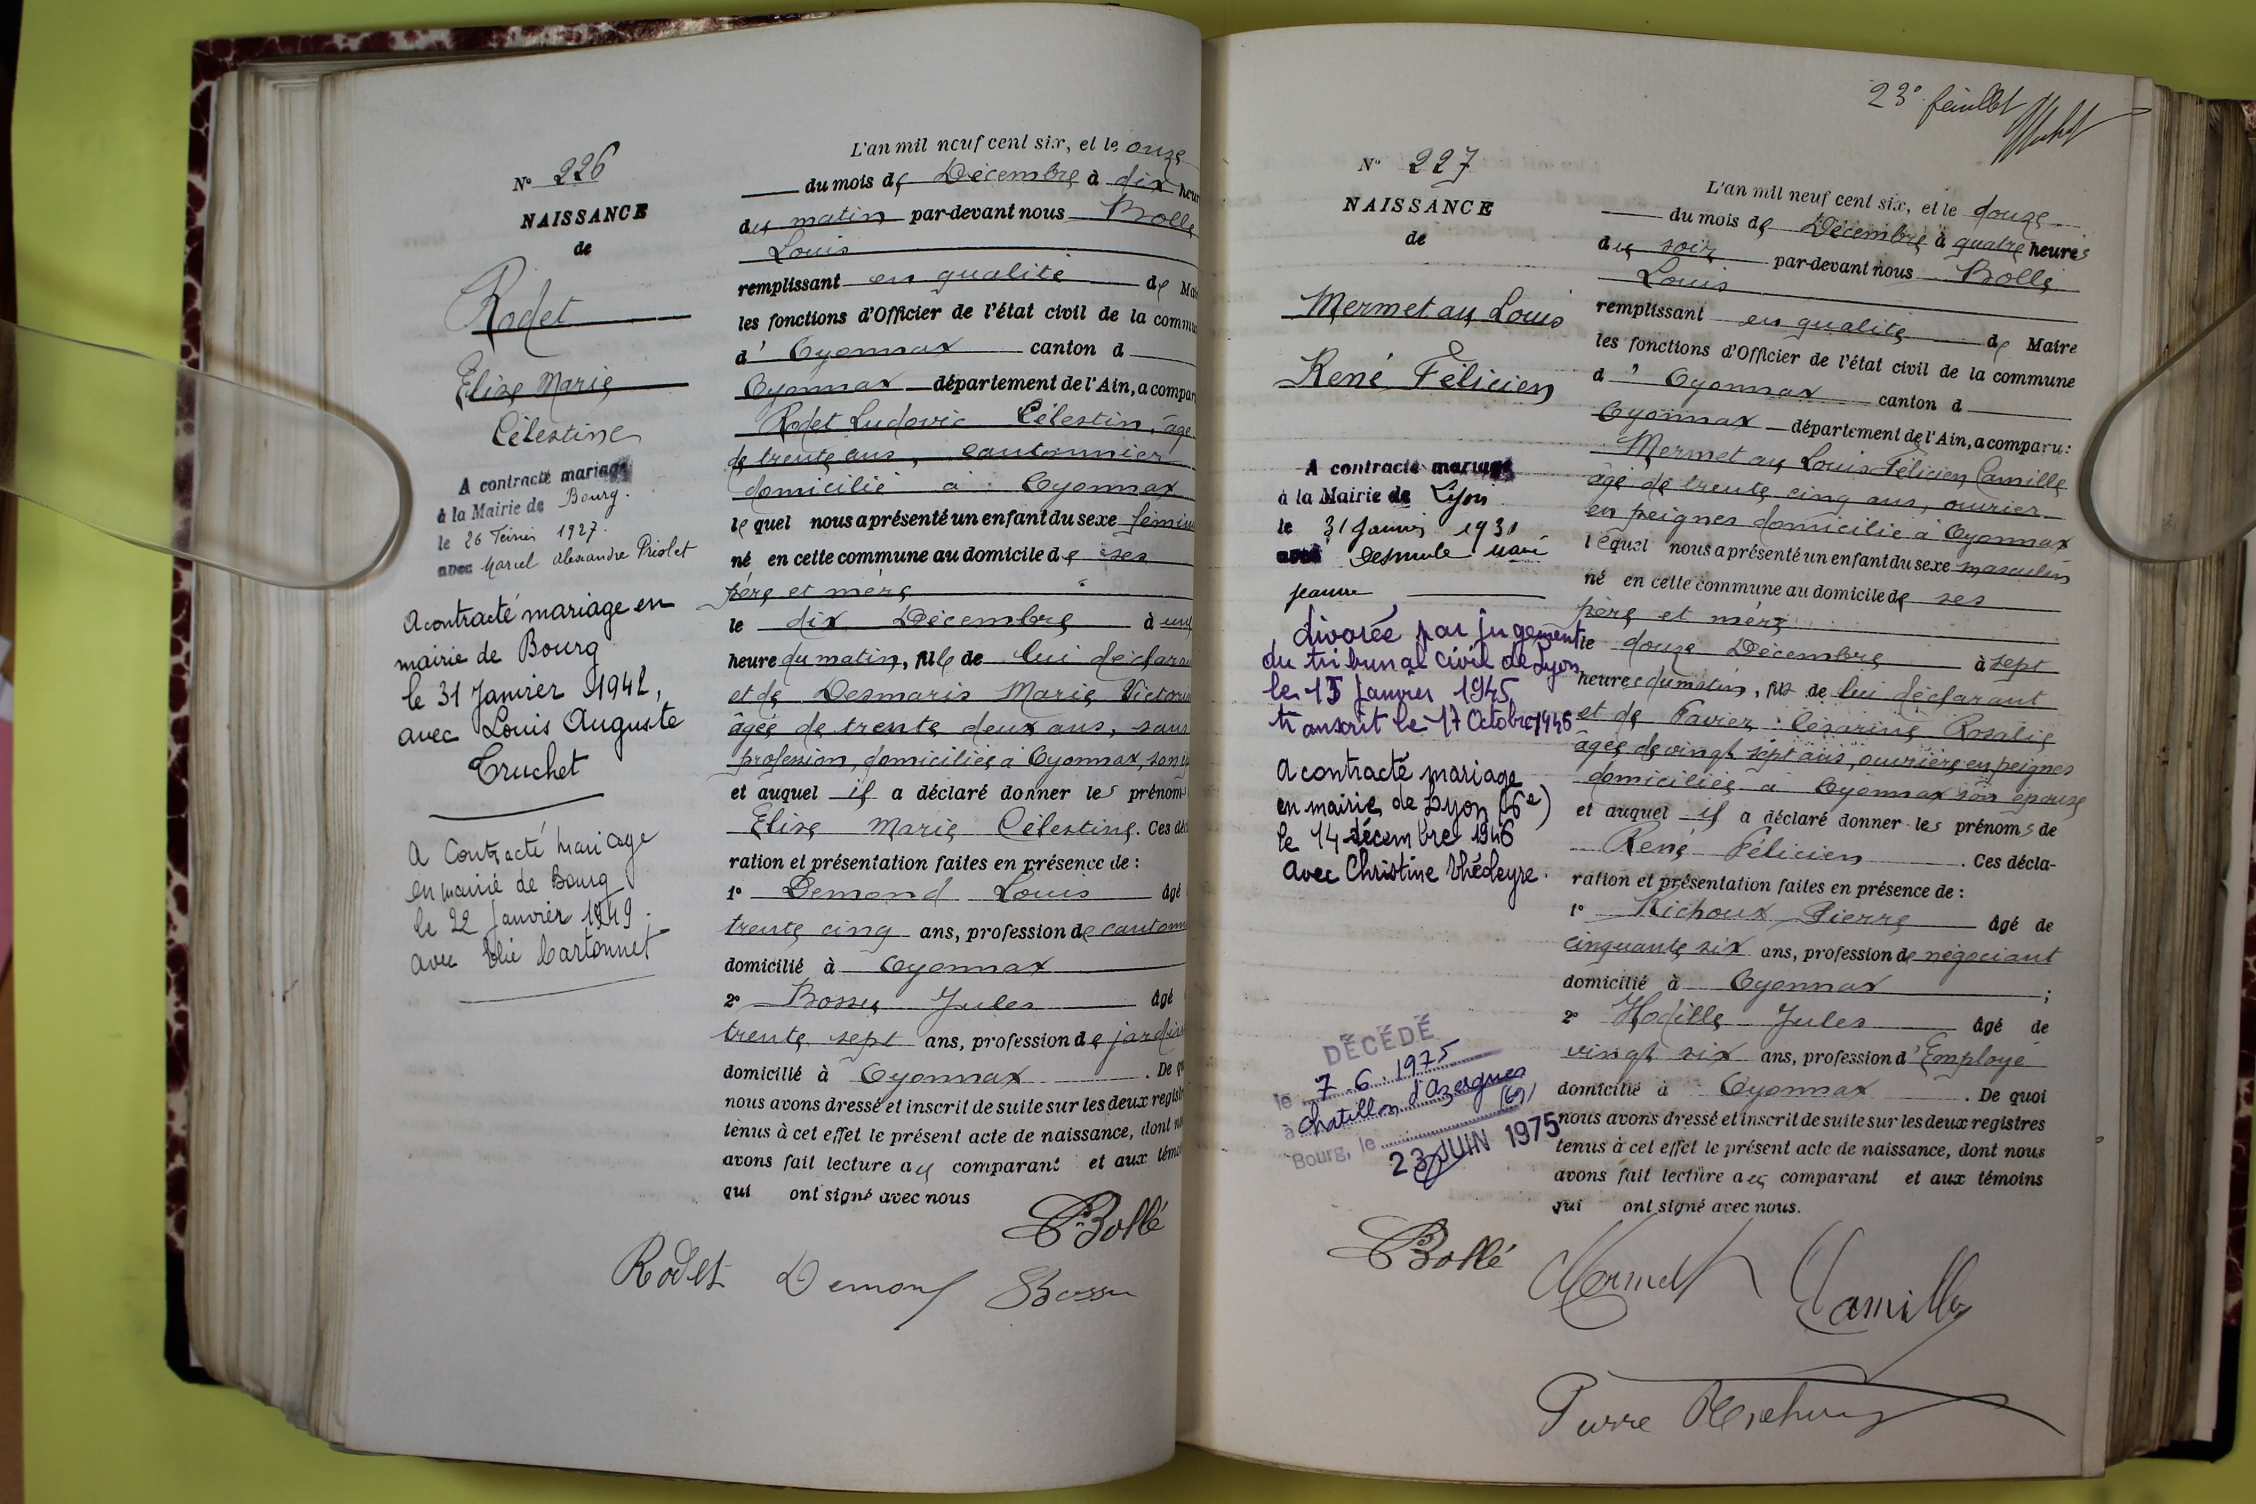 N° 226
NAISSANCE
de
Rodet
Elise Marie
Célestine
A contracté mariage
à la Mairie de Bourg.
le 26 Février 1927.
avec Marcel Alexandre Priolet
A contracté mariage en
mairie de Bourg
le 31 Janvier 1942,
avec Louis Auguste
Truchet
A Contracté mariage
en mairie de Bourg
le 22 Janvier 1949.
avec Elie Cartonnet
L'an mil neuf cent six, et le onze
du mois de Décembre à dix heur
du matin par-devant nous Bollé
Louis
remplissant en qualité de Mai
les fonctions d'Officier de l'état civil de la commu
d' Oyonnax canton d
Oyonnax département de l'Ain, a compar
Rodet Ludovic Célestin, âgé
de trente ans, cantonnier
domicilié à Oyonnax
lequel nous a présenté un enfant du sexe fémin
né en cette commune au domicile de ses
père et mère
le dix Décembre à une
heure du matin, fille de lui déclara
et de Desmaris Marie Victorin
âgée de trente deux ans, sans
profession, domiciliée à Oyonnax, son é
et auquel il a déclaré donner les prénoms
Elise Marie Célestine. Ces décl
ration et présentation faites en présence de :
1° Demond Louis âgé
trente cinq ans, profession de cantonn
domicilié à Oyonnax
2° Bossu Jules âgé
trente sept ans, profession de jardin
domicilié à Oyonnax. De qu
nous avons dressé et inscrit de suite sur les deux registr
tenus à cet effet le présent acte de naissance, dont no
avons fait lecture au comparant et aux témo
qui ont signé avec nous
Bollé
Rodet Demond Bossu
23e feuillet
N° 227
NAISSANCE
de
Mermet au Louis
René Félicien
A contracté mariage
à la Mairie de Lyon
le 31 Janvier 1931
avec Marie
Jeanne
divorcé par jugement
du tribunal civil de Lyon
le 15 Janvier 1945
transcrit le 17 Octobre 1946
A contracté mariage
en mairie de Lyon (6e)
le 14 décembre 1946
avec Christine Vhédeyre.
DÉCÉDÉ
le 7.6.1975
à Chatillon d'Azergues
(69)
Bourg, le
23 JUIN 1975
L'an mil neuf cent six, et le douze
du mois de Décembre à quatre heures
du soir par-devant nous Bollé
Louis
remplissant en qualité de Maire
les fonctions d'Officier de l'état civil de la commune
d' Oyonnax canton d
Oyonnax département de l'Ain, a comparu :
Mermet au Louis Félicien Camille
âgé de trente cinq ans, ouvrier
en peignes domicilié à Oyonnax
lequel nous a présenté un enfant du sexe masculin
né en cette commune au domicile de ses
père et mère
le douze Décembre à sept
heures du matin, fils de lui déclarant
et de Favier Césarine Rosalie
âgée de vingt sept ans, ouvrière en peignes
domiciliée à Oyonnax son épouse
et auquel il a déclaré donner les prénoms de
René Félicien. Ces décla-
ration et présentation faites en présence de :
1° Richoux Pierre âgé de
cinquante six ans, profession de négociant
domicilié à Oyonnax ;
2° Jules âgé de
vingt six ans, profession d'Employé
domicilié à Oyonnax. De quoi
nous avons dressé et inscrit de suite sur les deux registres
tenus à cet effet le présent acte de naissance, dont nous
avons fait lecture au comparant et aux témoins
qui ont signé avec nous.
Bollé Mermet Camille
Pierre Richoux